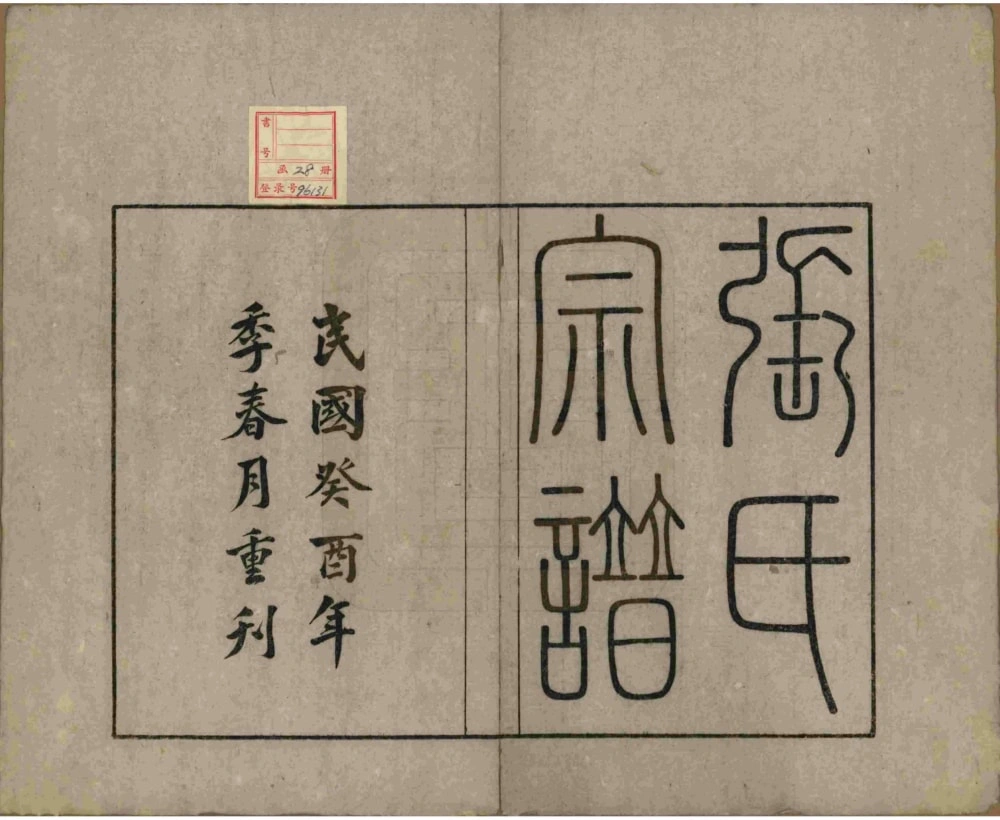 張氏
宗譜
民國癸酉年
季春月重刊
書号
函 28 冊
登录号 96131